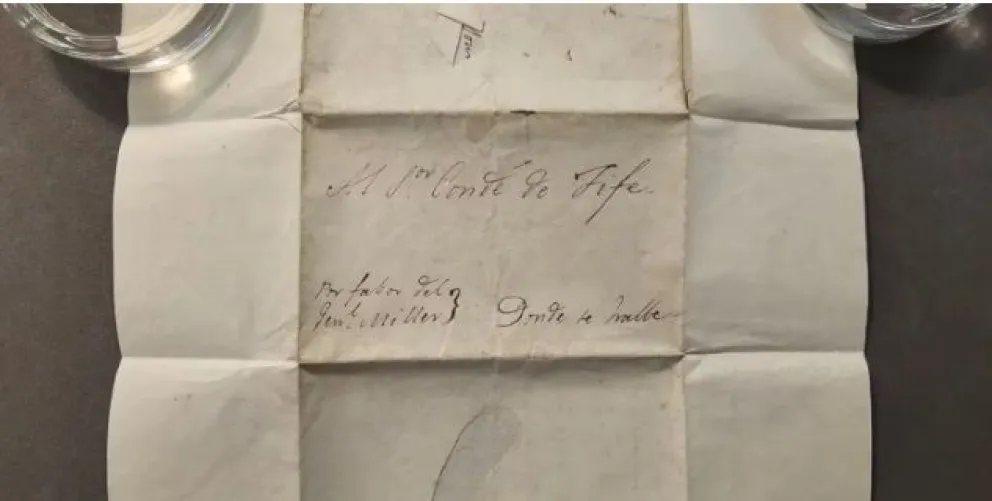 Al S.or Condé de Fife.
Por fabor del
Gen.l Miller }
Donde se halle